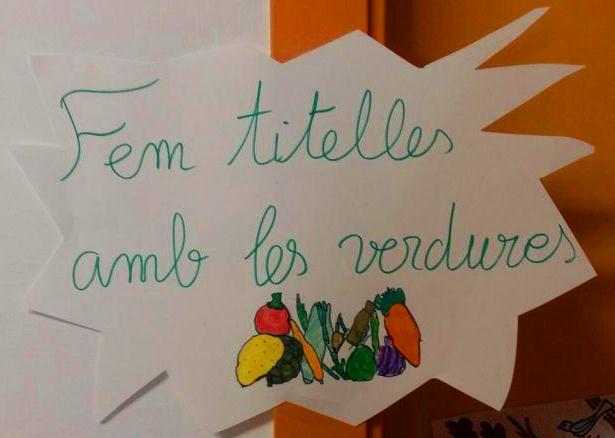 Fem titelles
amb les verdures